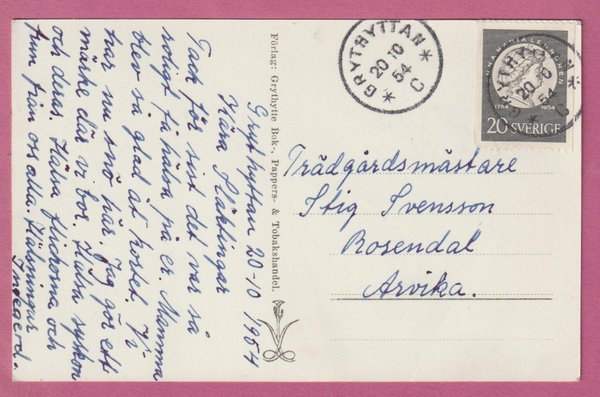 Grythyttan 20-10 1954
Kära Släktingar
Tack för sist det var så
roligt få hälsa på er. Mamma
blev så glad åt kortet. Vi
har nu snö här. Jag gör ett
märke där vi bor. Hälsa syskon
och deras. Hälsa flickorna och
hem från oss alla Hälsningar
Ingegerd.
Förlag: Grythytte Bok-, Pappers- & Tobakshandel.
GRYTHYTTAN
20 10
54
C
GRYTHYTTAN
20 10
54
C
ANNA MARIA LENNGREN
1754 1954
20 SVERIGE
Trädgårdsmästare
Stig Svensson
Rosendal
Arvika.